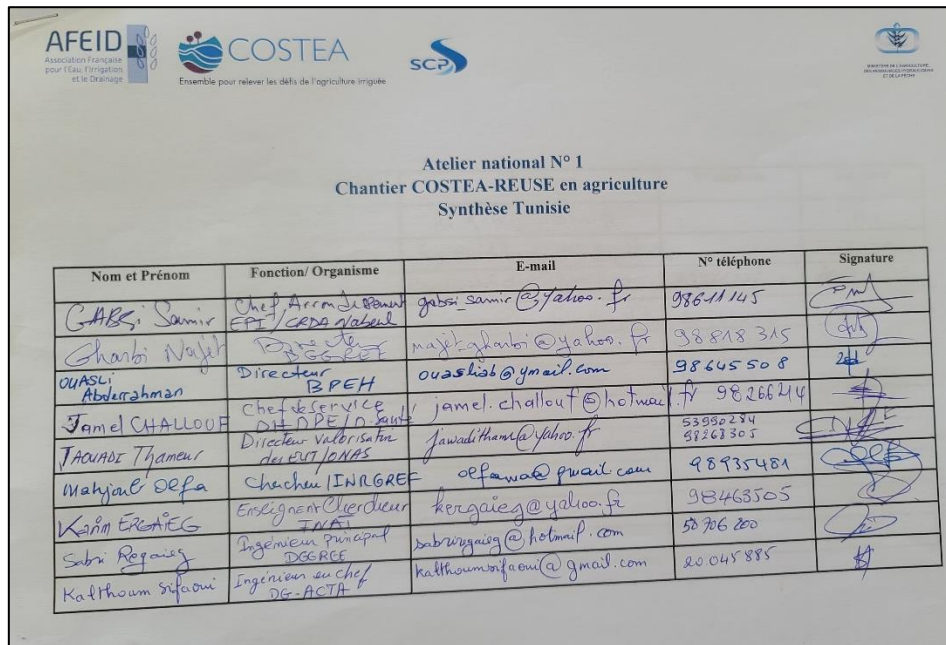 AFEID
Association Française
pour l'Eau, l'Irrigation
et le Drainage
COSTEA
Ensemble pour relever les défis de l'agriculture irriguée
SCP
MINISTÈRE DE L'AGRICULTURE
DES RESSOURCES HYDRAULIQUES
ET DE LA PÊCHE
Atelier national N° 1
Chantier COSTEA-REUSE en agriculture
Synthèse Tunisie
Nom et Prénom Fonction/ Organisme E-mail N° téléphone Signature
GABSi Samir Chef Arrondissement EPI/CRDA Nabeul gabsi_samir@yahoo.fr 98611145
Gharbi Najet DGGREE majet_gharbi@yahoo.fr 98818315
OUASLi Abderrahman Directeur BPEH ouasliab@gmail.com 98645508
Jamel CHALLOUF Chef de service jamel.challouf@hotmail.fr 98266214
JAOUADI Thameur Directeur Valorisation des EUT/ONAS jawadithamer@yahoo.fr 53990284
98268305
Mahjoub Olfa INRGREF olfamaa@gmail.com 98935481
Karim ERGAIEG Enseignant Chercheur INAT kergaieg@yahoo.fr 98463505
Sabri Regaieg Ingénieur principal DGGREE sabriregaieg@hotmail.com 50706200
Kalthoum Sifaoui Ingénieur en chef DG-ACTA kalthoumsifaoui@gmail.com 20.045885